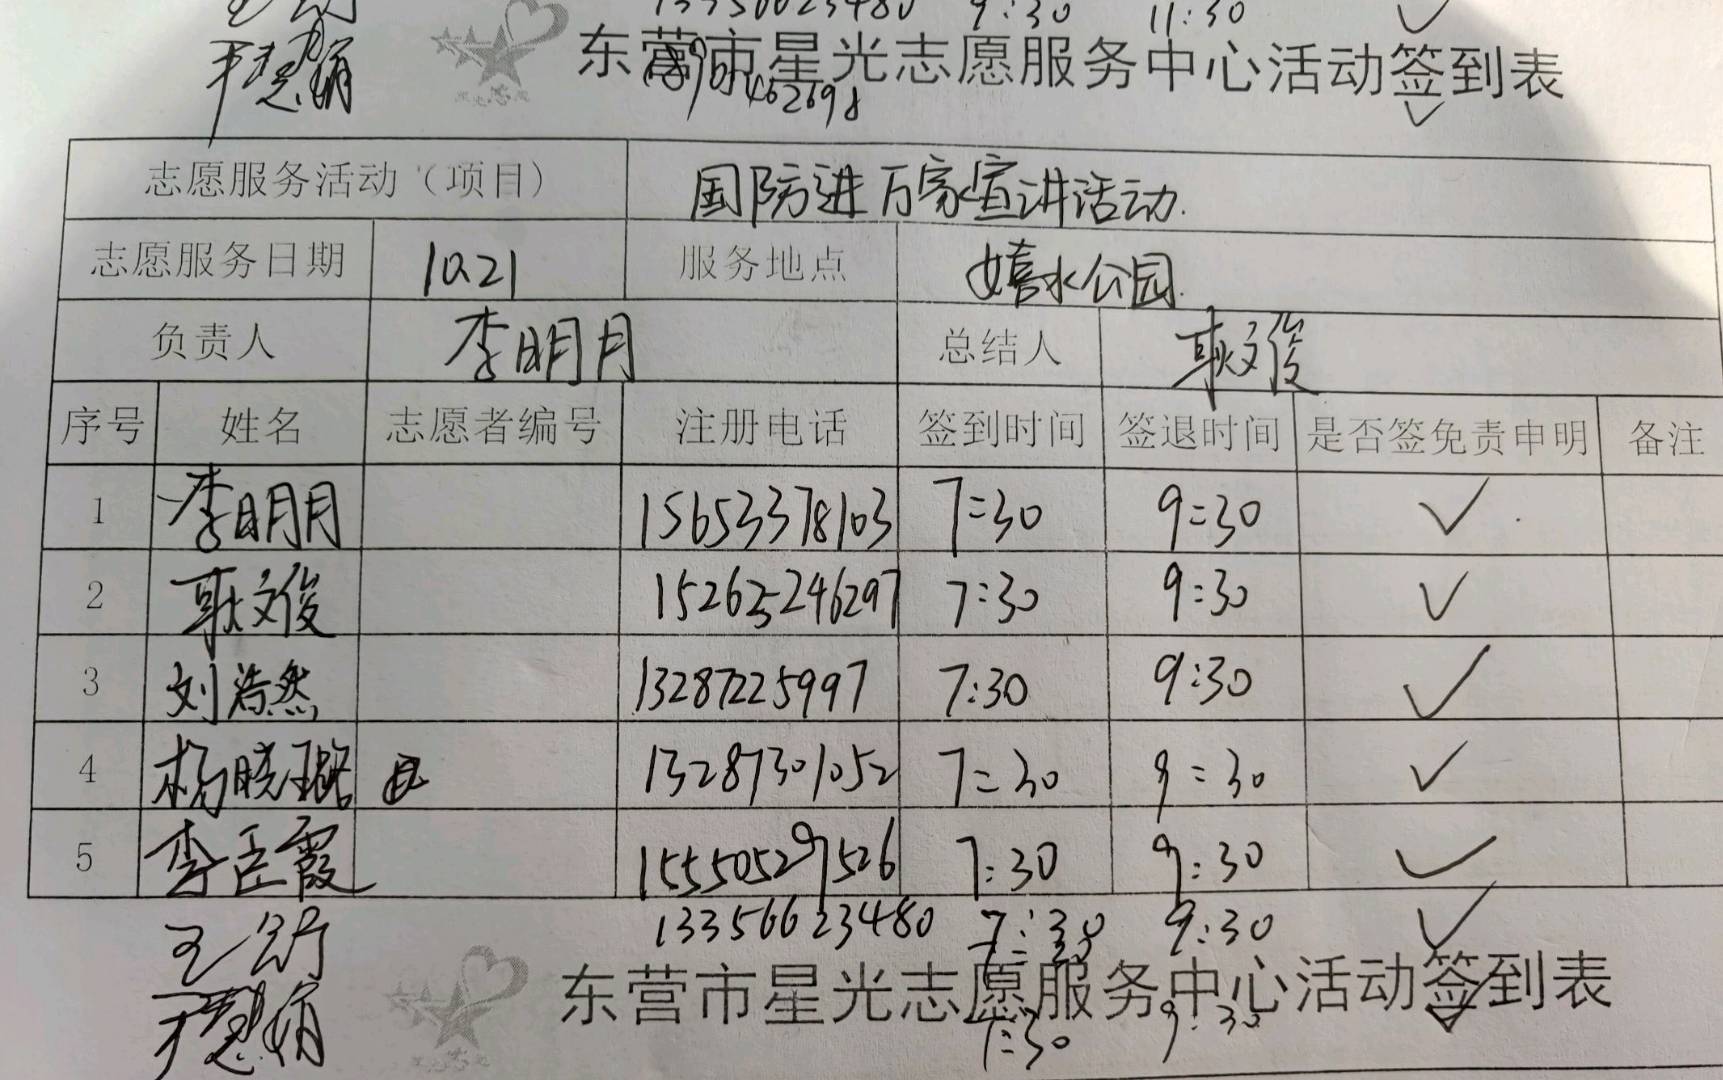 13356623480 9:30 11:30 ✓
东营市星光志愿服务中心活动签到表
✓
志愿服务活动（项目） 国防进万家宣讲活动.
志愿服务日期 10.21 服务地点 嬉水公园.
负责人 李明月 总结人 耿文俊
序号 姓名 志愿者编号 注册电话 签到时间 签退时间 是否签免责申明 备注
1 李明月 15653378103 7:30 9:30 ✓
2 耿文俊 15263246297 7:30 9:30 ✓
3 刘浩然 13287225997 7:30 9:30 ✓
4 杨晓璐 13287301052 7:30 9:30 ✓
5 李臣霞 15550529526 7:30 9:30 ✓
王舒 13356623480 7:30 9:30 ✓
东营市星光志愿服务中心活动签到表
7:30 9:30 ✓